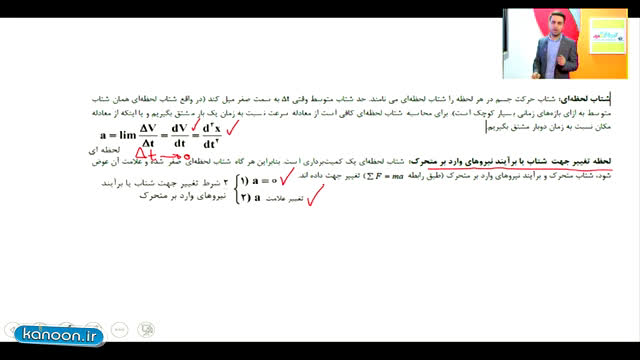 شتاب لحظه‌ای: شتاب حرکت جسم در هر لحظه را شتاب لحظه‌ای می نامند. حد شتاب متوسط وقتی Δt به سمت صفر میل کند (در واقع شتاب لحظه‌ای همان شتاب
متوسط به ازای بازه‌های زمانی بسیار کوچک است) برای محاسبه شتاب لحظه‌ای کافی است از معادله سرعت نسبت به زمان یک بار مشتق بگیریم و یا اینکه از معادله
مکان نسبت به زمان دوبار مشتق بگیریم
a = lim ΔV/Δt = dV/dt = d²x/dt²
لحظه ای
Δt → 0
لحظه تغییر جهت شتاب یا برآیند نیروهای وارد بر متحرک: شتاب لحظه‌ای یک کمیت‌برداری است. بنابراین هر گاه شتاب لحظه‌ای صفر شده و علامت آن عوض
شود، شتاب متحرک و برآیند نیروهای وارد بر متحرک (طبق رابطه ΣF = ma) تغییر جهت داده اند.
۲ شرط تغییر جهت شتاب یا برآیند
نیروهای وارد بر متحرک
۱) a = ۰
۲) a تغییر علامت
kanoon.ir